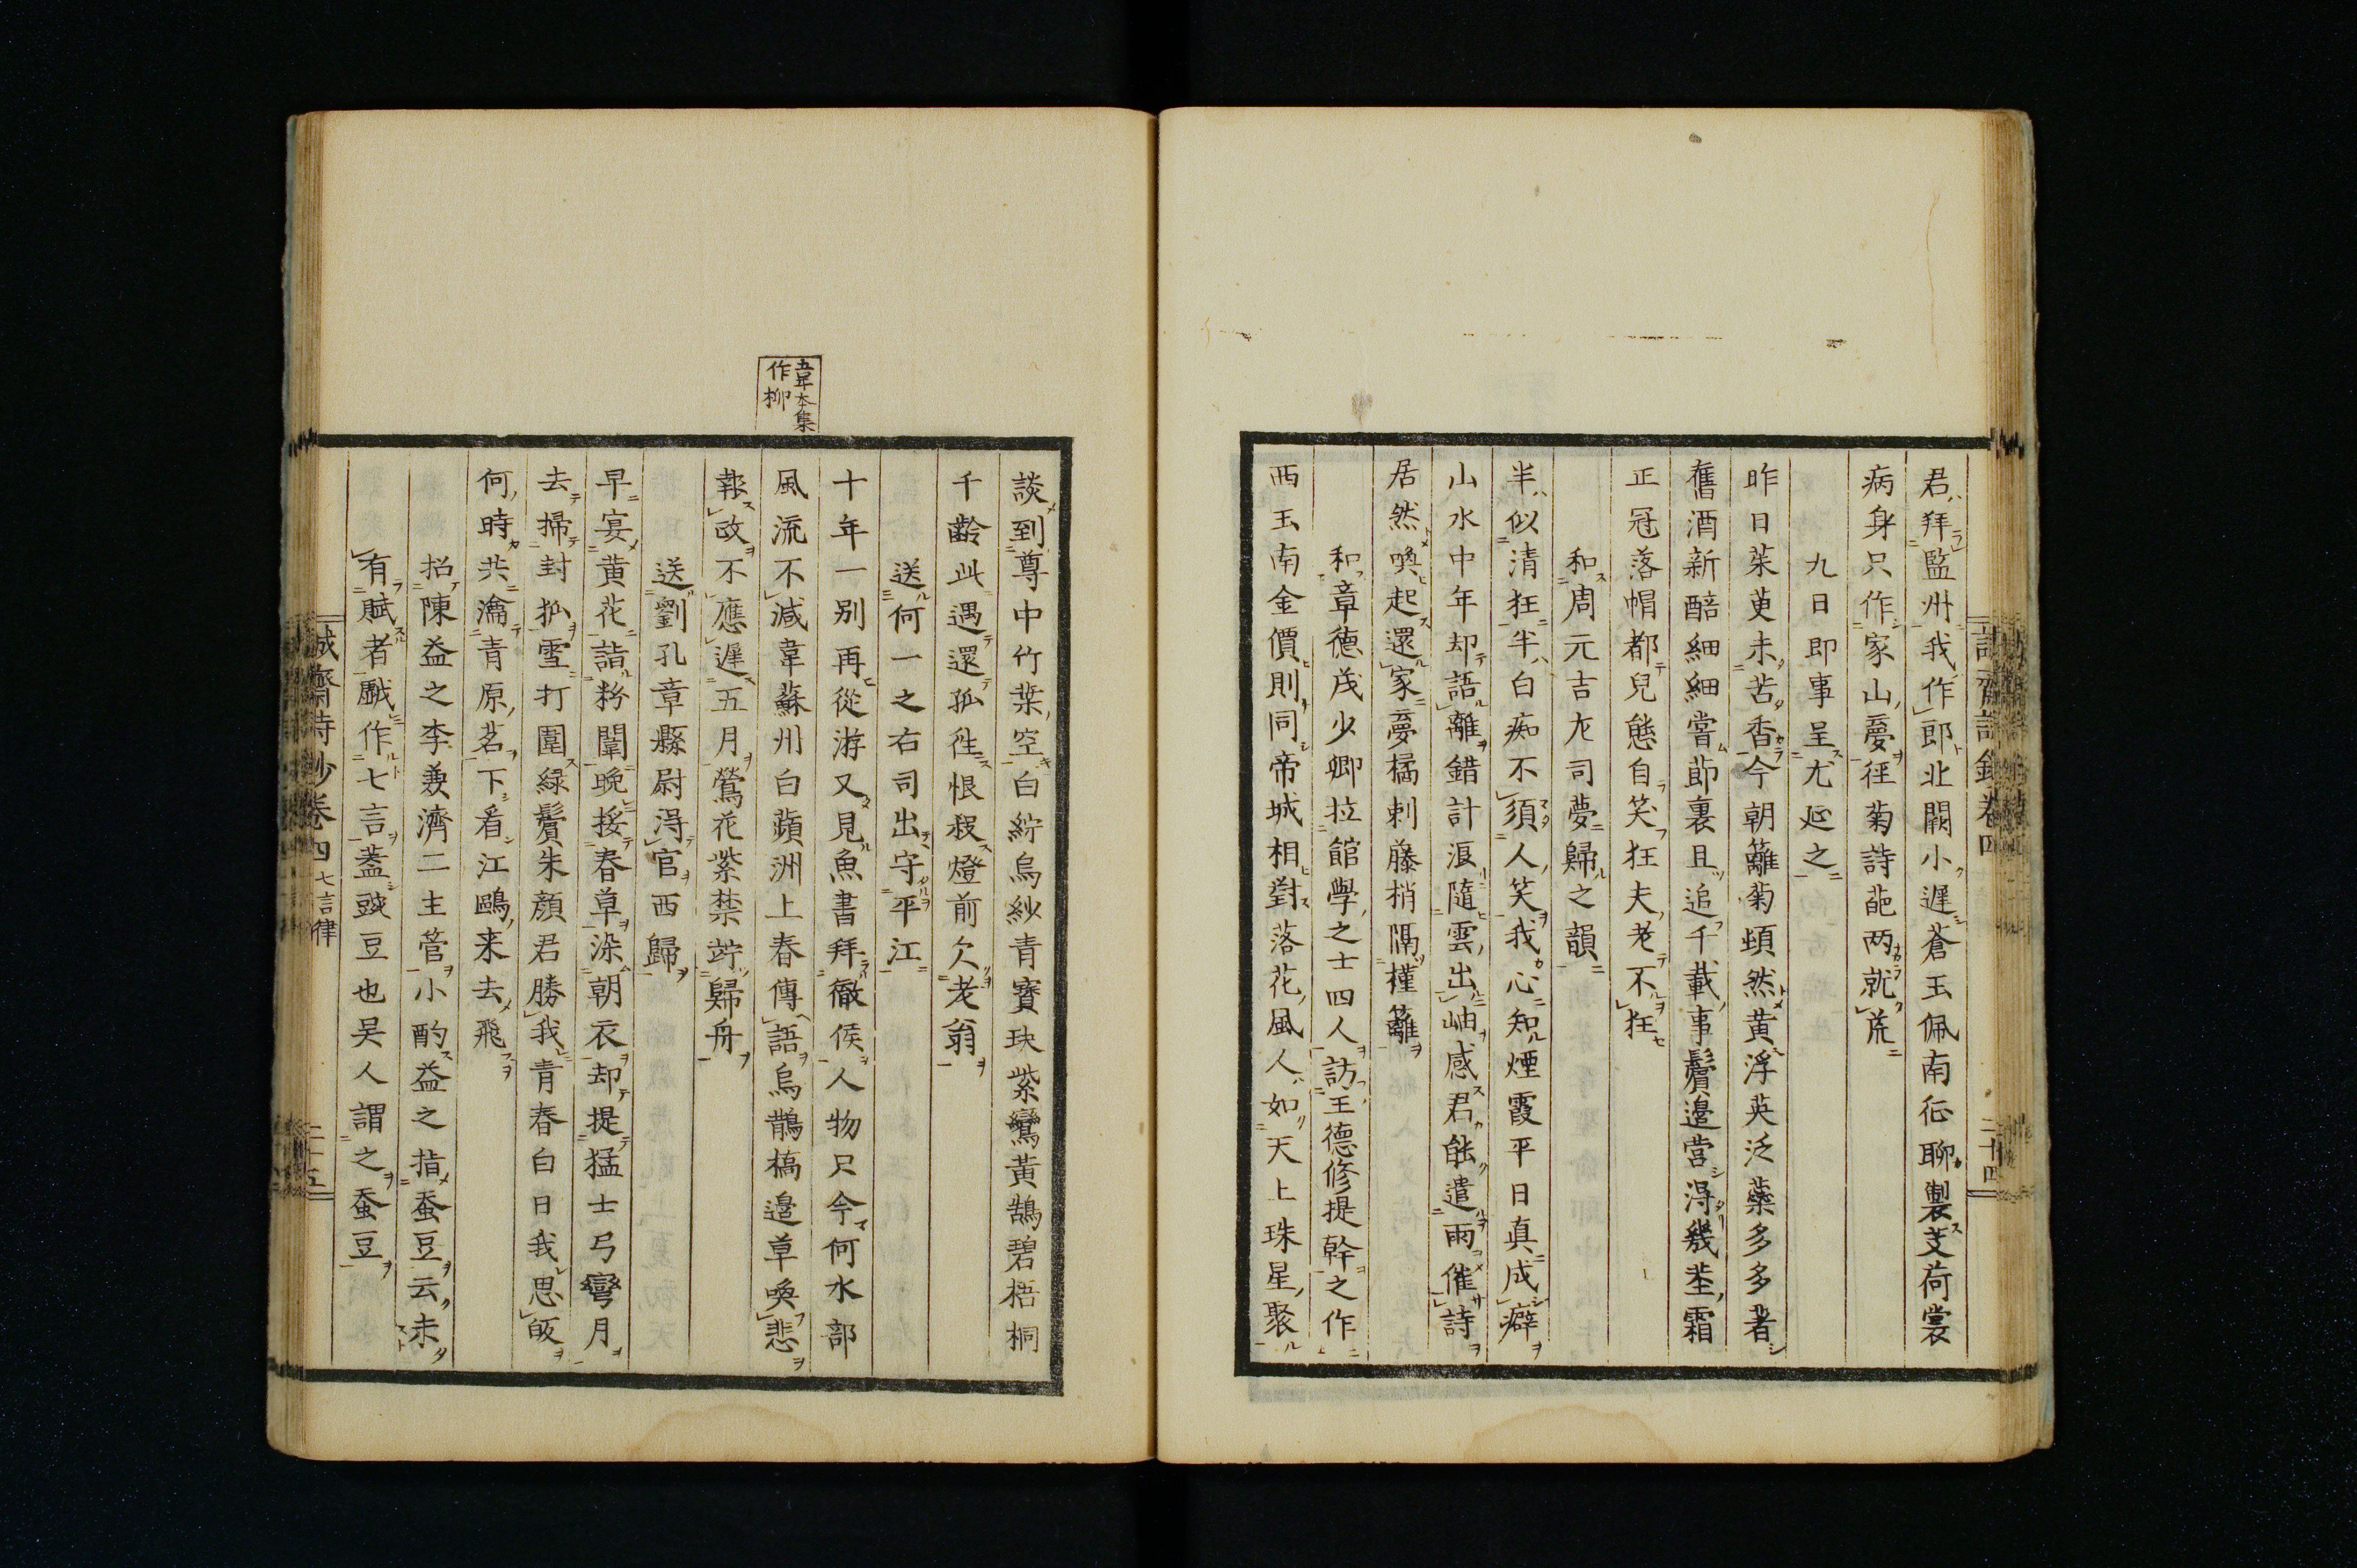 君拜監州我作郎北闕小遲蒼玉佩南征聊製芰荷裳
病身只作家山夢徑菊詩葩兩就荒
九日即事呈尤延之
昨日茱萸未苦香今朝籬菊頓然黄浮英泛蘂多多著
舊酒新醅細細嘗節裏且追千載事鬢邉當得幾莖霜
正冠落帽都兒態自笑狂夫老不狂
和周元吉左司夢歸之韻
半似清狂半白痴不須人笑我心知煙霞平日真成癖
山水中年却語離錯計浪隨雲出岫感君能遣雨催詩
居然喚起還家夢橘刺藤梢隔槿籬
和章德茂少卿拉館學之士四人訪王德修提幹之作
西玉南金價則同帝城相對落花風人如天上珠星聚
談到尊中竹葉空白紵烏紗青寶玦紫鸞黄鵠碧梧桐
千齡此遇還孤往恨殺燈前欠老翁
送何一之右司出守平江
十年一別再從游又見魚書拜徹侯人物只今何水部
風流不減韋蘇州白蘋洲上春傳語烏鵲橋邉草喚悲
報政不應遲五月鶯花紫禁竚歸舟
送劉孔章縣尉得官西歸
早宴黄花詣粉闈晩挼春草染朝衣却提猛士弓彎月
去掃封狐雪打圍緑鬢朱顔君勝我青春白日我思皈
何時共瀹青原茗下看江鷗来去飛
招陳益之李兼濟二主管小酌益之指蚕豆云未
有賦者戲作七言蓋豌豆也吴人謂之蚕豆
韋本集
作柳
誠齋詩鈔卷四 七言律
二十五
二十四